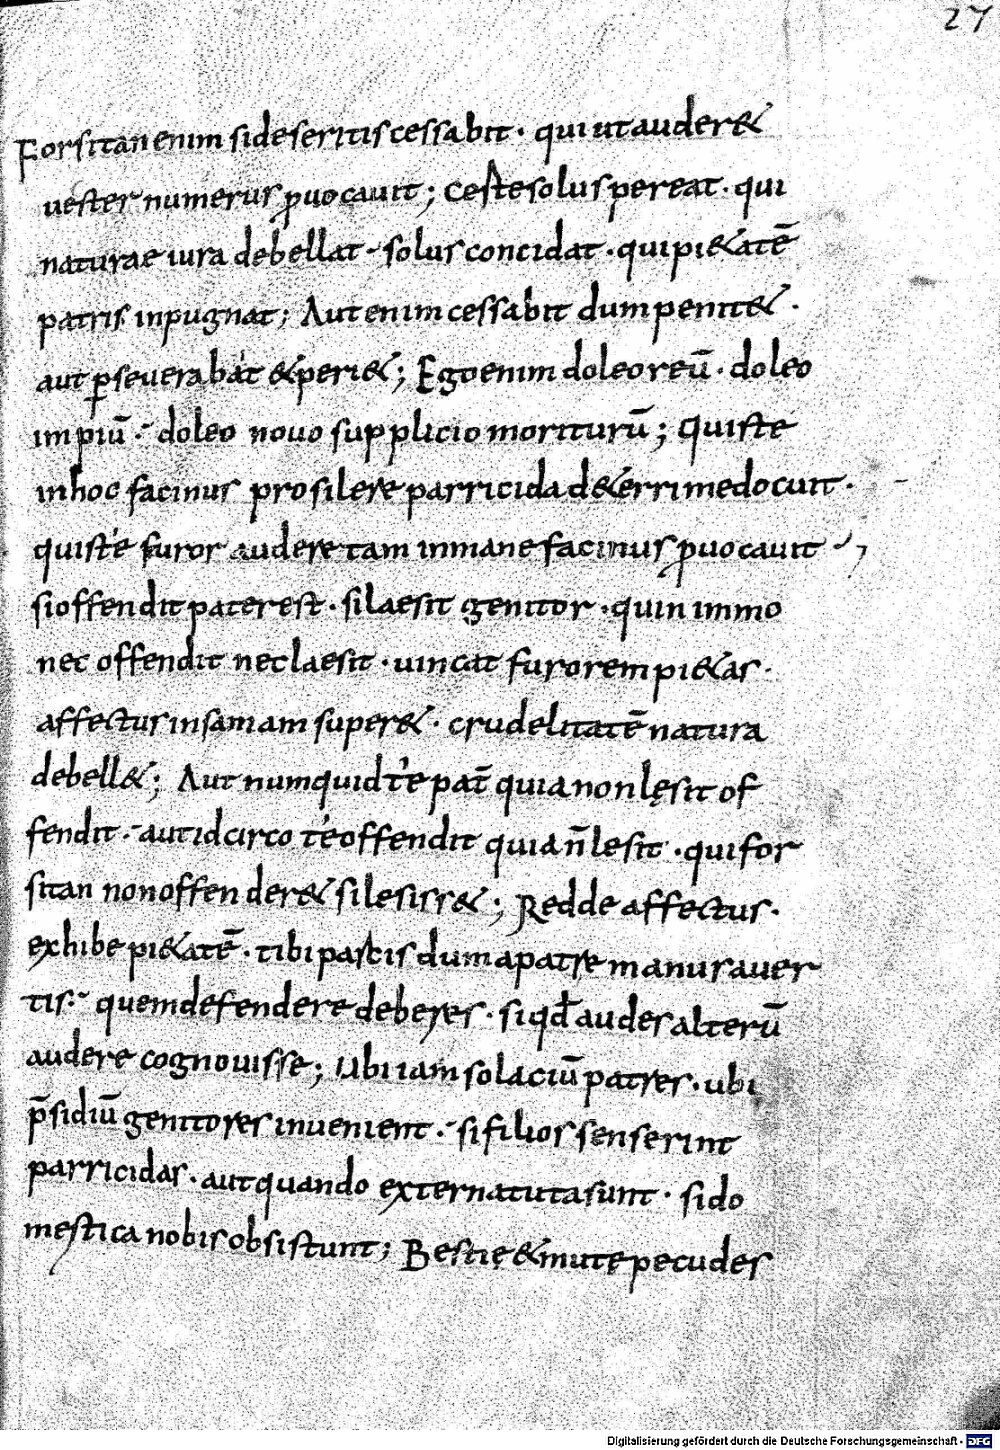 27
Forsitan enim si deseritis cessabit · qui ut auder&
uester numerus ꝓuocauit; Certe solus pereat · qui
naturae iura debellat · solus concidat · qui pi&atē
patris inpugnat; Aut enim cessabit dum penit& ·
aut ꝑseuerabat & peri&; Ego enim doleo reū · doleo
impiū · doleo nouo supplicio moriturū; Quis te
in hoc facinus prosilere parricida d&errime docuit ·
quis te furor audere tam inmane facinus ꝓuocauit
si offendit pater est · si laesit genitor · quin immo
nec offendit nec laesit · uincat furorem pi&as ·
affectus insaniam super& · crudelitatē natura
debell&; Aut numquid te pat̄ quia non lęsit of
fendit · aut idcirco te offendit quia n̄ lesit · qui for
sitan non offender& si lesiss&; Redde affectus ·
exhibe pi&atē · tibi parcis dum a patre manus auer
tis · quem defendere deberes · si qđ audes alterū
audere cognouisse; Ubi iam solaciū patres · ubi
p̄sidiū genitores inuenient · si filios senserint
parricidas · aut quando externa tuta sunt · si do
mestica nobis obsistunt; Bestię & mutę pecudes
Digitalisierung gefördert durch die Deutsche Forschungsgemeinschaft - DFG